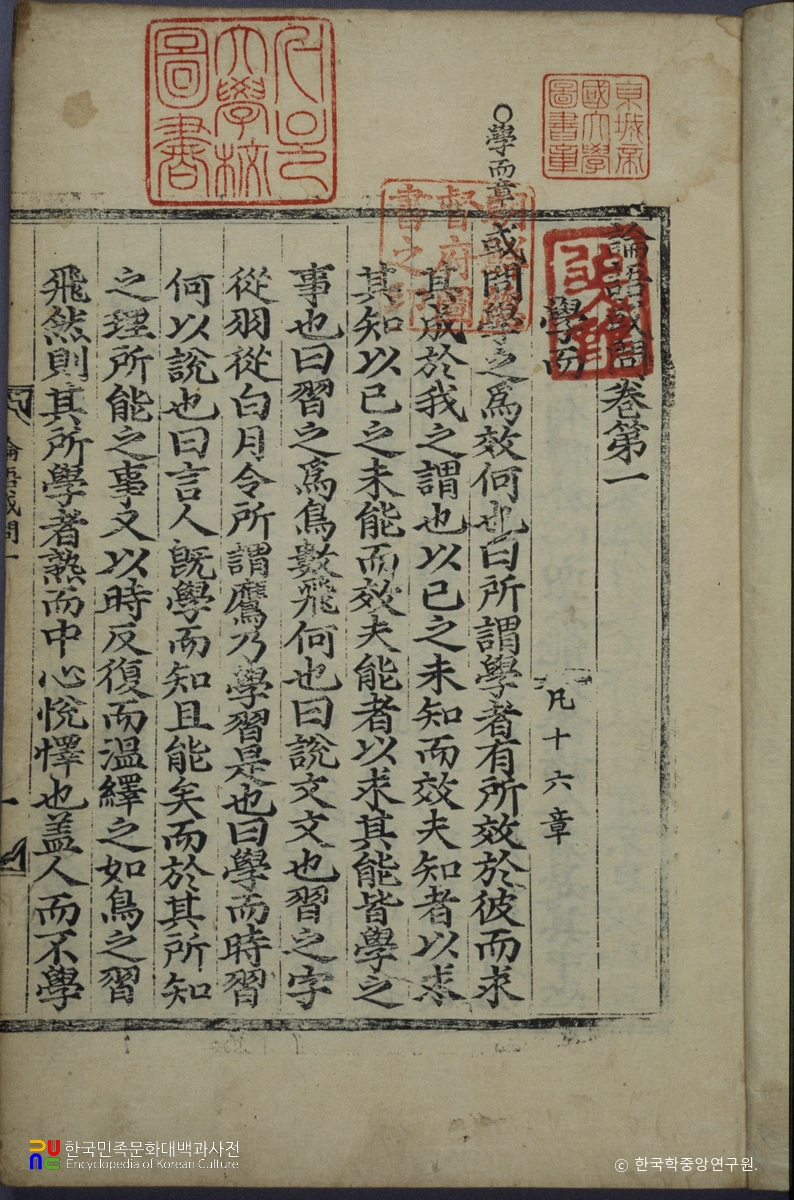 論語或問卷第一
學而
凡十六章
○學而章
或問學之爲效何也曰所謂學者有所效於彼而求
其成於我之謂也以已之未知而效夫知者以求
其知以已之未能而效夫能者以求其能皆學之
事也曰習之爲鳥數飛何也曰說文文也習之字
從羽從白月令所謂鷹乃學習是也曰學而時習
何以說也曰言人旣學而知且能矣而於其所知
之理所能之事又以時反復而溫繹之如鳥之習
飛然則其所學者熟而中心悅懌也盖人而不學
論語或問一
東城帝
國大學
圖書章
大學校
圖書
督府圖
書之
한국민족문화대백과사전
Encyclopedia of Korean Culture
© 한국학중앙연구원.